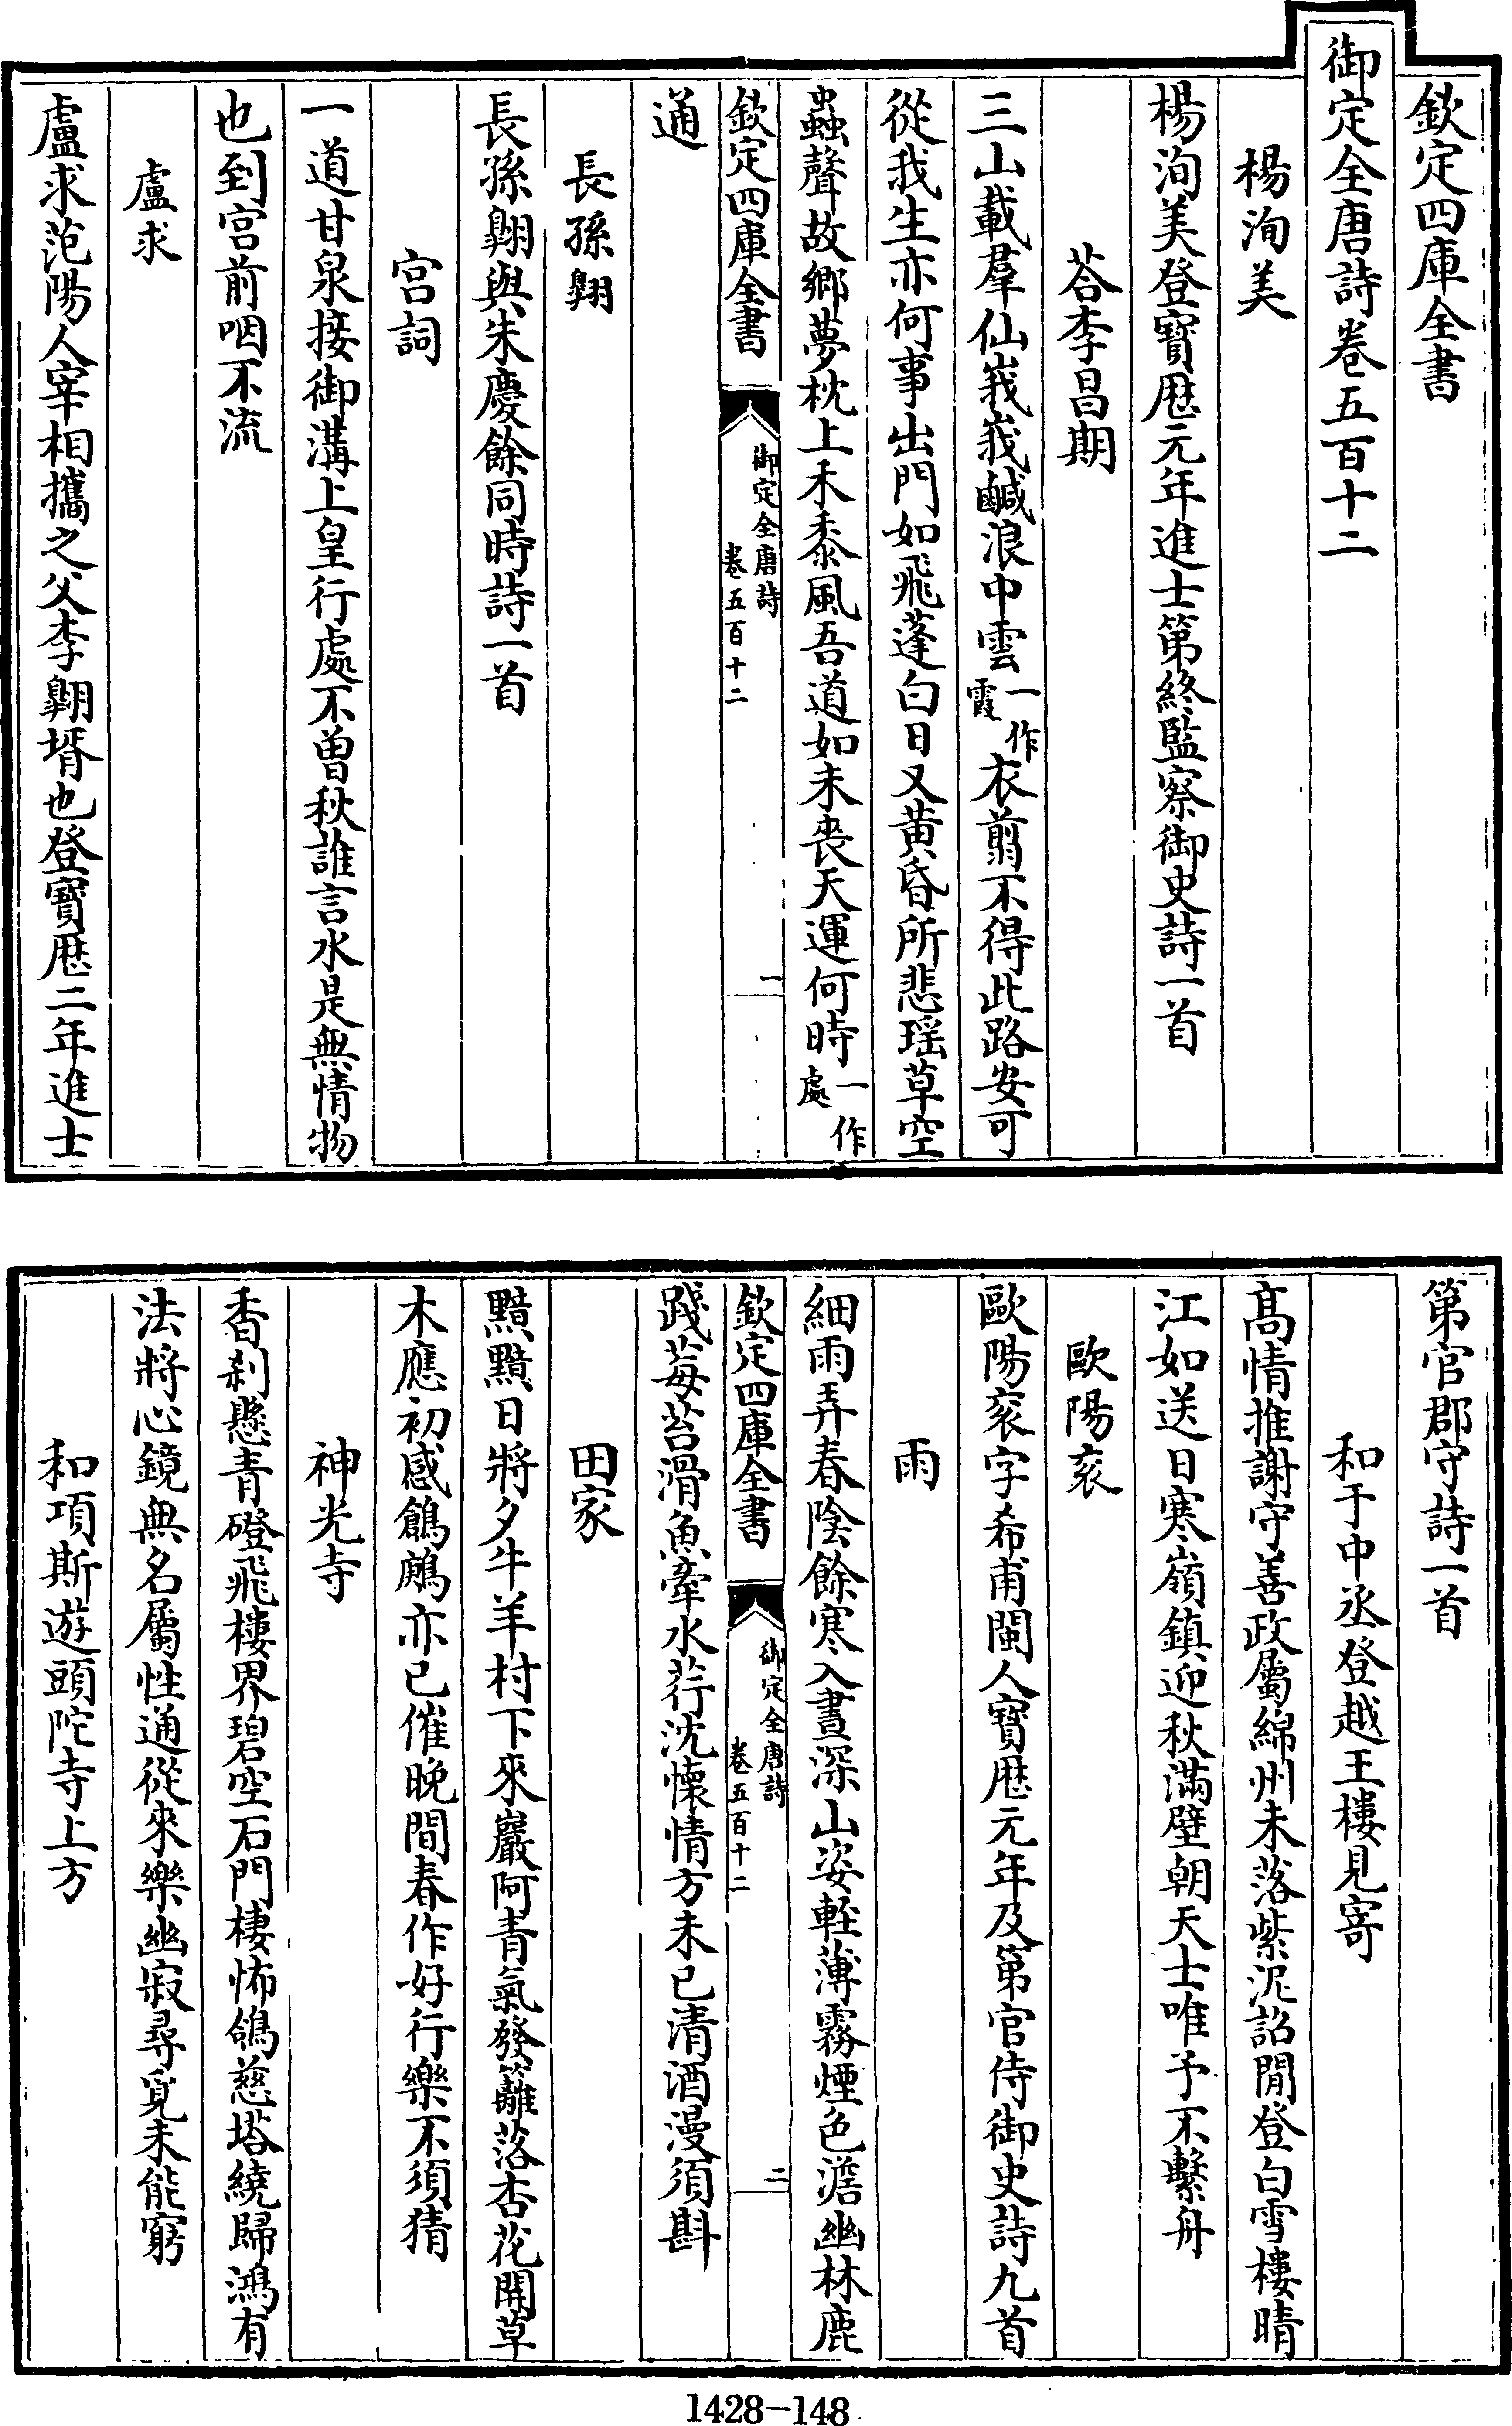 欽定四庫全書
御定全唐詩卷五百十二
楊洵美
楊洵美登寶厯元年進士第終監察御史詩一首
荅李昌期
三山載羣仙峩峩鹹浪中雲一作霞衣翦不得此路安可
從我生亦何事出門如飛蓬白日又黄昏所悲瑶草空
蟲聲故鄉夢枕上禾黍風吾道如未喪天運何時一作處
欽定四庫全書
御定全唐詩
卷五百十二
一
通
長孫翱
長孫翱與朱慶餘同時詩一首
宫詞
一道甘泉接御溝上皇行處不曽秋誰言水是無情物
也到宫前咽不流
盧求
盧求范陽人宰相攜之父李翱壻也登寶厯二年進士
第官郡守詩一首
和于中丞登越王樓見寄
髙情推謝守善政屬綿州未落紫泥詔閒登白雪樓晴
江如送日寒嶺鎮迎秋滿壁朝天士唯予不繫舟
歐陽衮
歐陽衮字希甫閩人寶厯元年及第官侍御史詩九首
雨
細雨弄春陰餘寒入晝深山姿輕薄霧煙色澹幽林鹿
踐莓苔滑魚牽水荇沈懷情方未已清酒漫須斟
欽定四庫全書
御定全唐詩
卷五百十二
二
田家
黯黯日將夕牛羊村下來巖阿青氣發籬落杏花開草
木應初感鶬鶊亦已催晚間春作好行樂不須猜
神光寺
香刹懸青磴飛樓界碧空石門棲怖鴿慈塔繞歸鴻有
法將心鏡無名屬性通從來樂幽寂尋覓未能窮
和項斯遊頭陀寺上方
1428-148